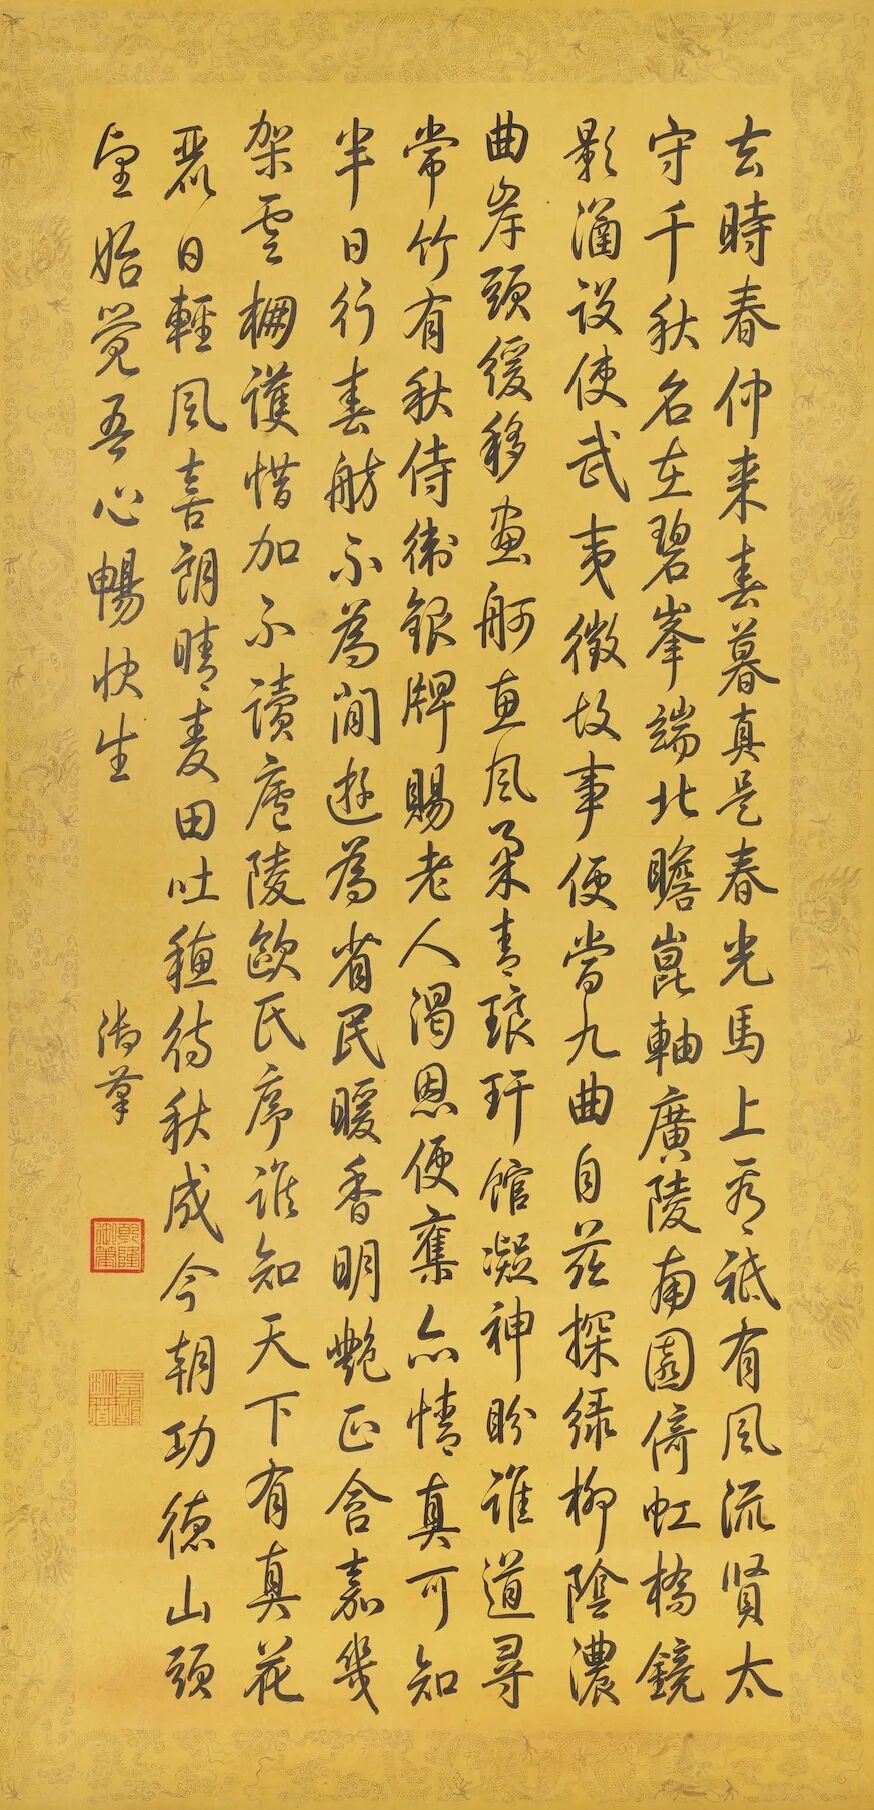 去時春仲来春暮真是春光馬上看祗有風流賢太
守千秋名在碧峯端北瞻崑軸廣陵南園倚虹橋鏡
影涵設使武夷徵故事便當九曲自茲探緑柳陰濃
曲岸頭緩移畫舸惠風柔青琅玕館凝神盼誰道尋
常竹有秋侍衛銀牌賜老人渴恩便奪亦情真可知
半日行春舫不為閒遊為省民暖香明艷正含嘉幾
架雲棚護惜加不讀廬陵歐氏序誰知天下有真花
麗日輕風喜朗晴麦田吐穗待秋成今朝功德山頭
望始覺吾心暢快生
御筆
乾隆御筆